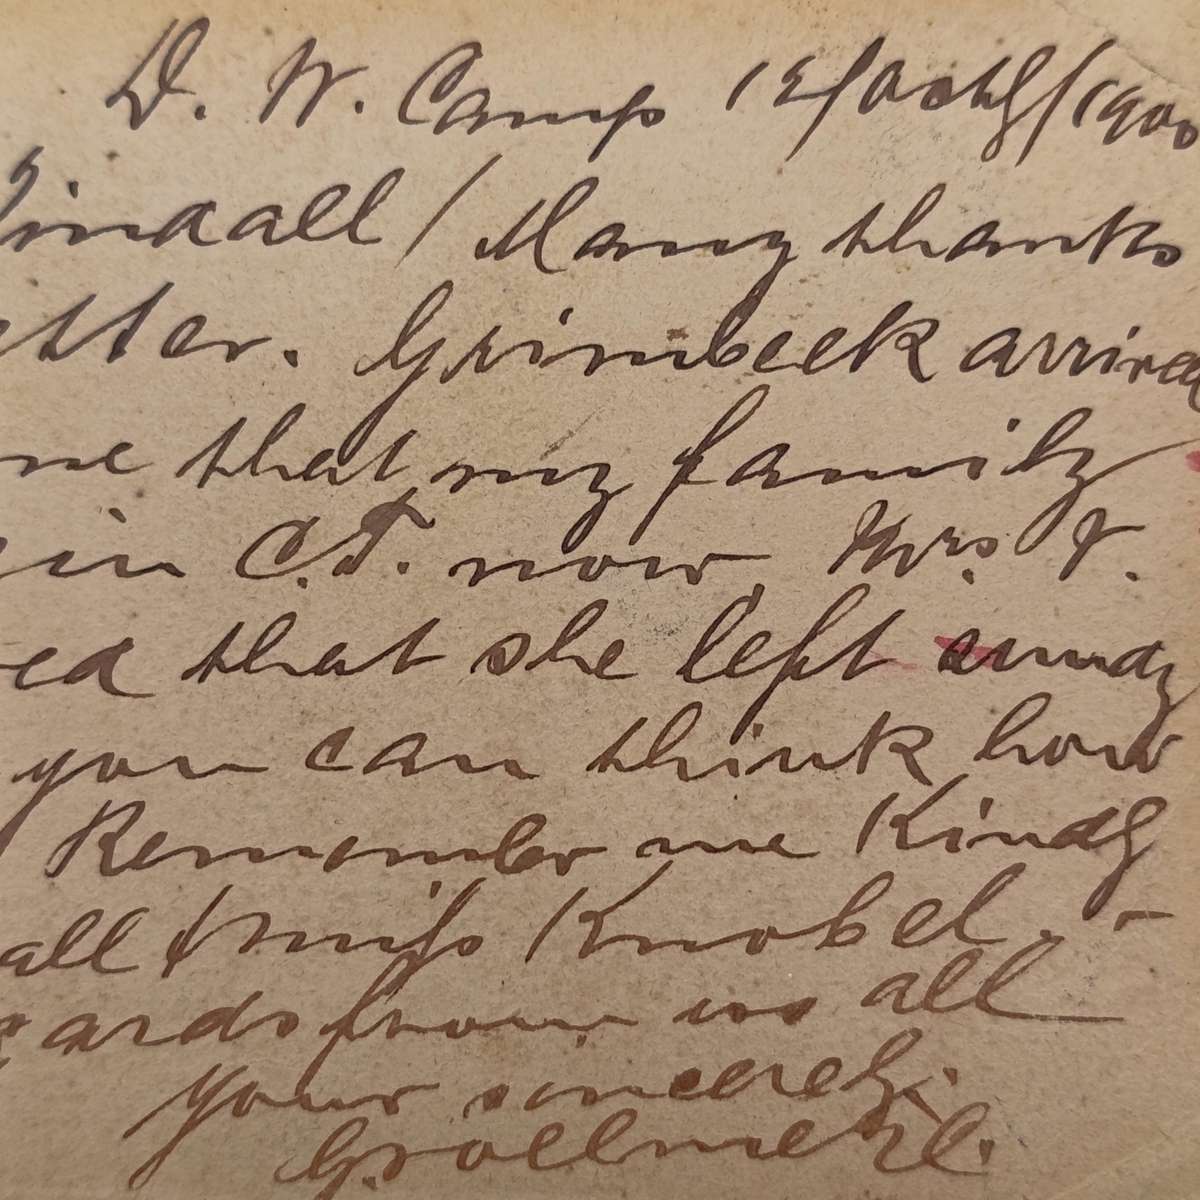 D. W. Camp 12/Octb/1900
indall / Many thanks
etter. Grimbeek arrived
me that my family
in C.T. now, Mrs. V.
ed that she left
you can think how
Remember me Kindly
all & Miss Knobel. -
gards from us all
Your sincerely: